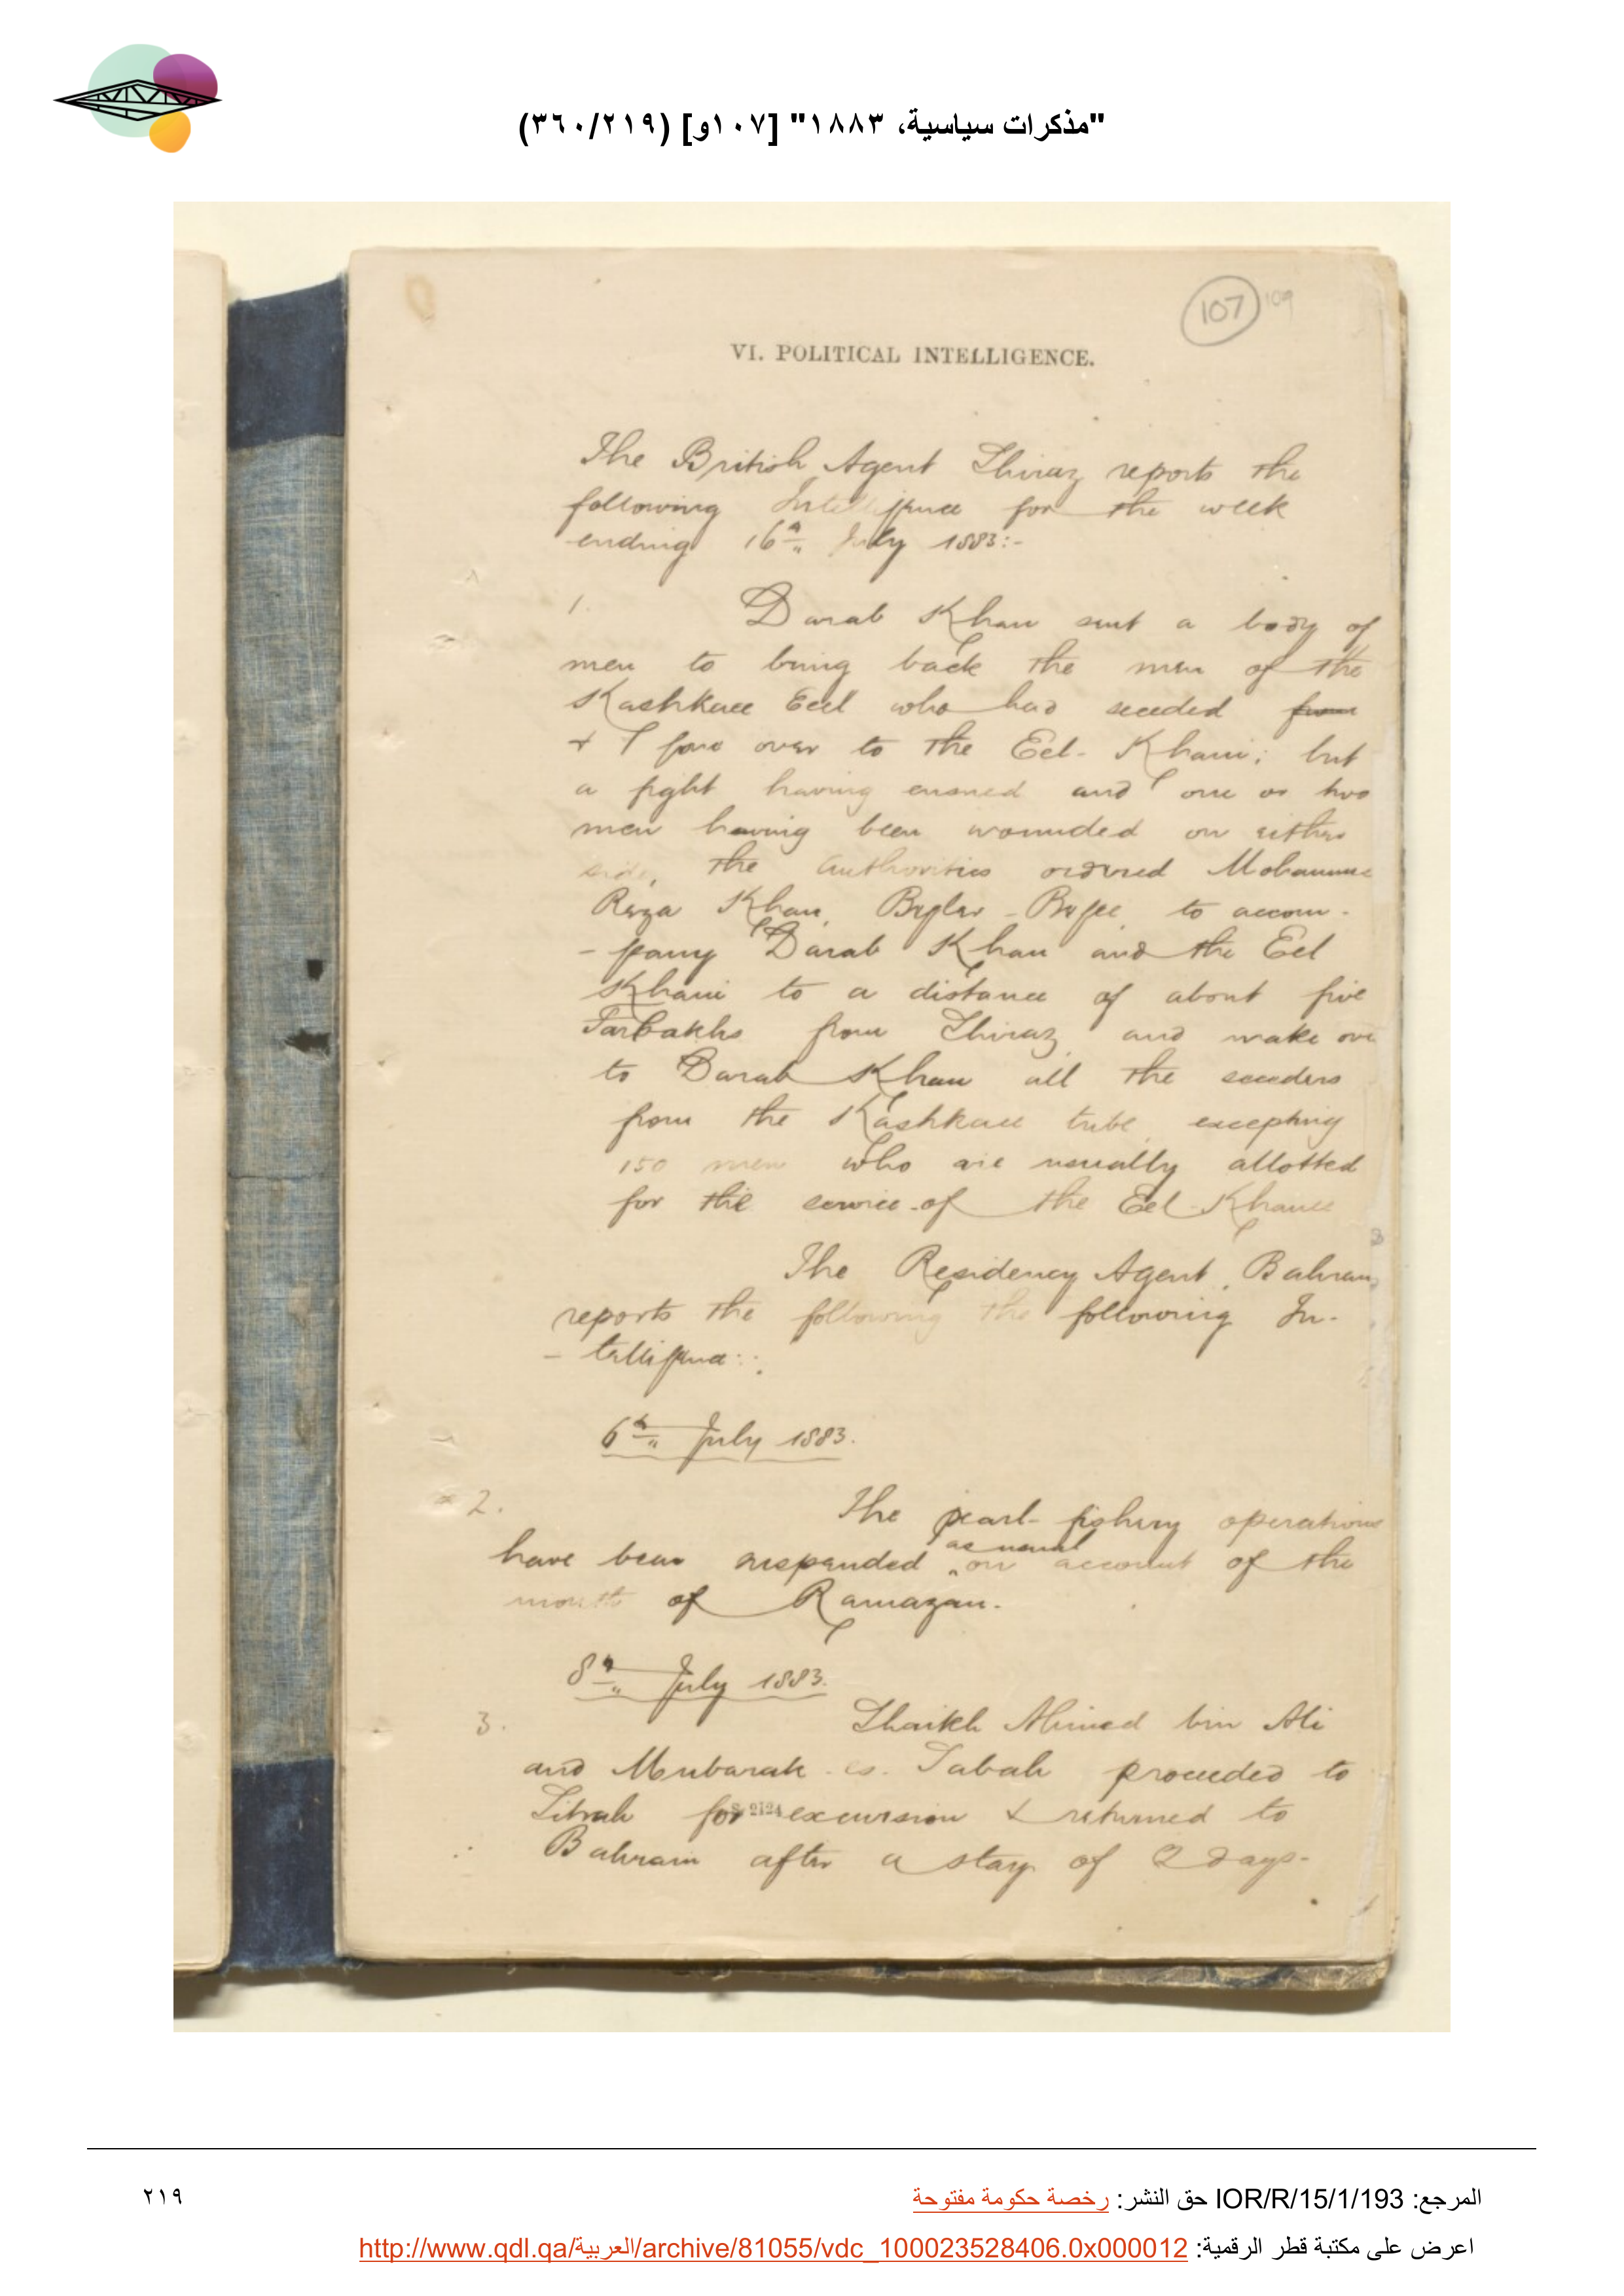 "مذكرات سياسية، ١٨٨٣" [١٠٧و] (٣٦٠/٢١٩)
107 109
VI. POLITICAL INTELLIGENCE.
The British Agent Shiraz reports the
following Intelligence for the week
ending 16th July 1883:-
1. Darab Khan sent a body of
men to bring back the men of the
Kashkaee Eel who had seceded from
& gone over to the Eel-Khani; but
a fight having ensued and one or two
men having been wounded on either
side, the authorities ordered Mohammed
Reza Khan, Begler-Begee, to accom-
-pany Darab Khan and the Eel
Khani to a distance of about five
Farsakhs from Shiraz and make over
to Darab Khan all the seceders
from the Kashkaee tribe excepting
150 men who are usually allotted
for the service of the Eel-Khanee
The Residency Agent, Bahrain,
reports the following the following In-
-telligence:-
6th July 1883.
2. The pearl-fishery operations
have been suspended as usual on account of the
month of Ramazan.
8th July 1883.
3. Shaikh Ahmed bin Ali
and Mubarak es-Sabah proceeded to
Sitrah for excursion & returned to
Bahrain after a stay of 2 days.
S 2124
المرجع: IOR/R/15/1/193 حق النشر: رخصة حكومة مفتوحة
٢١٩
اعرض على مكتبة قطر الرقمية: http://www.qdl.qa/العربية/archive/81055/vdc_100023528406.0x000012